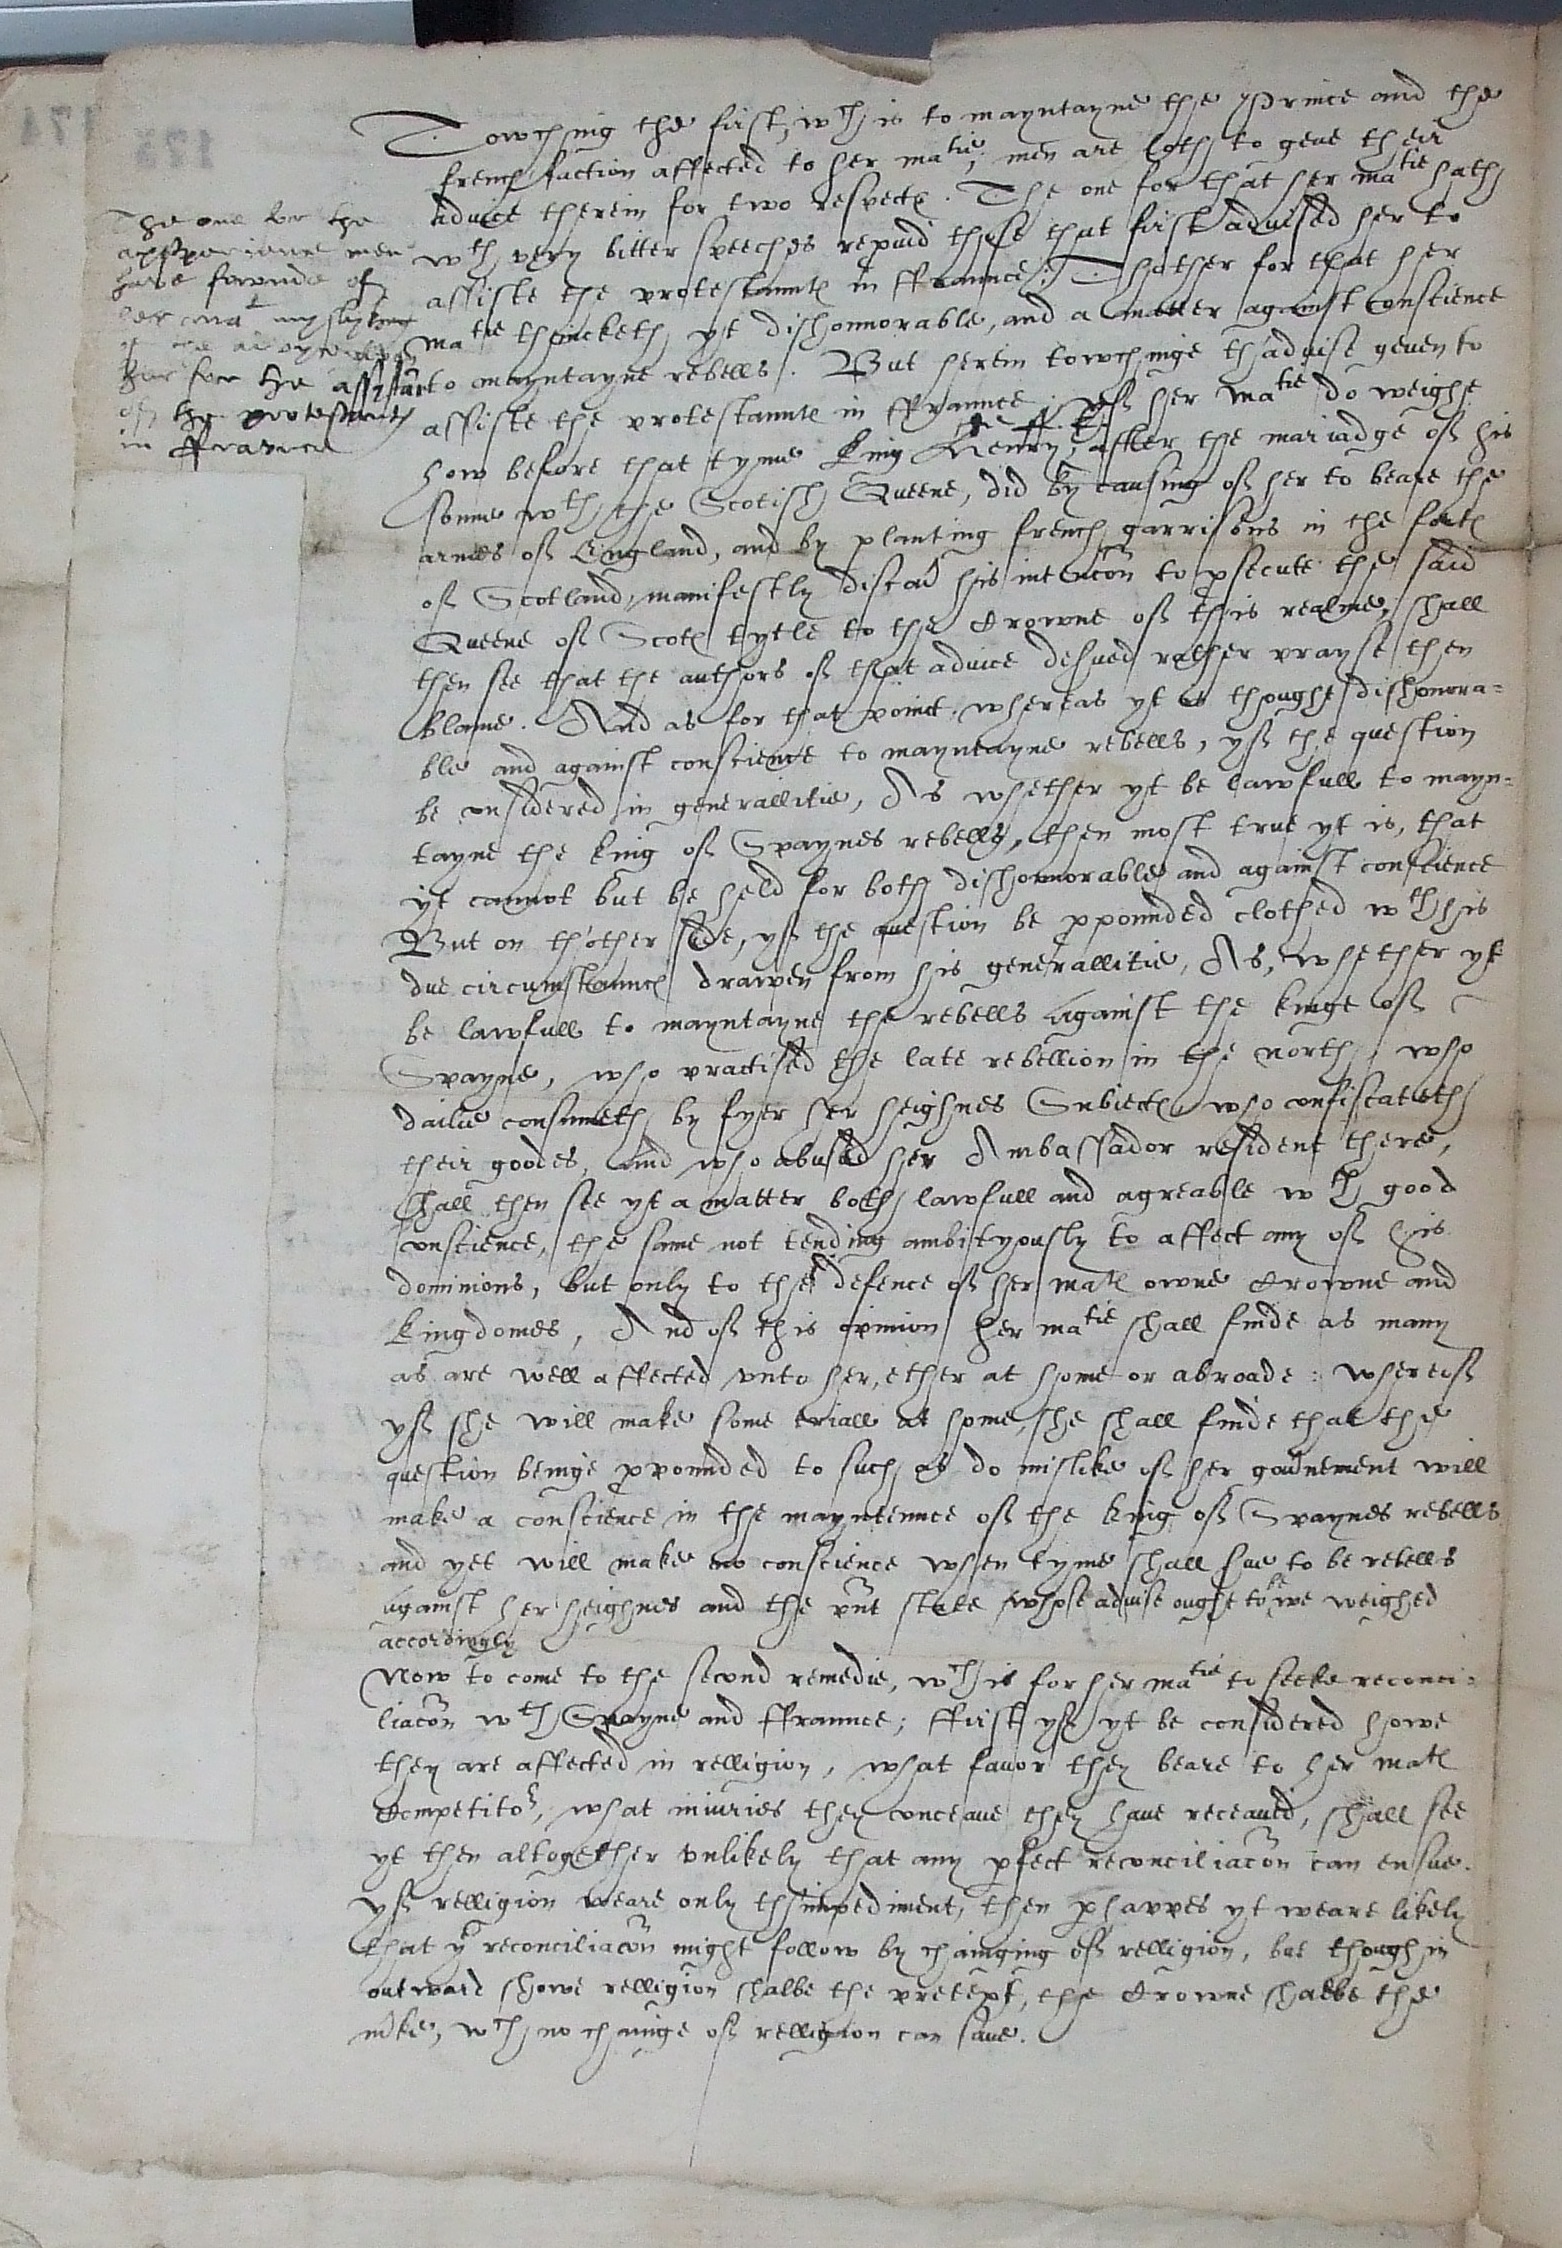 Towching the first, wch is to mayntayne the Prince and the
french faction affected to her matie, men are loth to geue their
aduice therein for two respectes. The one for that her matie hath
wth very bitter speeches repaid those that first aduised her to
assiste the protestauntes in ffraunce: Thother for that her
matie thincketh yt dishonnorable, and a matter against conscience
to mayntayne rebells. But herein towchinge thaduise geuen to
assiste the protestauntes in ffraunce, yf her matie do weighe
how before that tyme King Henry, after the mariadge of his
sonne wth the Scotish Queene, did by causing of her to beare the
armes of England, and by planting french garrisons in the fortes
of Scotland, manifestly discoũ his intencõn to psecute the said
Queene of Scotes tytle to the Crowne of this realme, shall
then see that the authors of that aduice deserued rather prayse then
blame. And as for that poinct, whereas yt is thought dishonora=
ble and against conscience to mayntayne rebells, yf the question
be considered in generallitie, As whether yt be lawfull to mayn=
tayne the king of Spaynes rebells, then most true yt is, that
yt cannot but be held for both dishonnorable and against conscience
But on th'other side, yf the question be ppounded clothed wth his
due circumstaunces drawen from his generallitie, As, whether yt
be lawfull to mayntayne the rebells against the kinge of
Spayne, who practised the late rebellion in the north, who
dailie consumeth by fyer her heighnes Subiectes, who confiscateth
their goodes, and who abused her Ambassador resident there,
shall then see yt a matter both lawfull and agreable wth good
conscience, the same not tending ambityously to affect any of his
dominions, but only to the defence of her mates owne Crowne and
kingdomes, And of this opinion her matie shall finde as many
as are well affected vnto her, ether at home or abroade: whereof
yf she will make some triall at home, she shall finde that the
question beinge ppounded to such as do mislike of her gouũnement will
make a conscience in the mayntennce of the king of Spaynes rebells
and yet will make no conscience when tyme shall serue to be rebells
against her heighnes and the pñt state whose aduise ought to be weighed
accordingly
Now to come to the second remedie, wch is for her matie to seeke reconci=
liacõn wth Spayne and ffraunce; ffirst yf yt be considered howe
they are affected in relligion, what fauor they beare to her mates
Competitor, what iniuries they conceaue they haue receaued, shall see
yt then altogether vnlikely that any pfect reconciliacõn can ensue.
yf relligion weare only th'impediment, then phappes yt weare likely
that ye reconciliacõn might follow by chainging of relligion, but though in
outward showe relligion shalbe the pretext, the Crowne shalbe the
mke, wch no chainge of relligion can saue.
The one for the
experience men
have fownde of
her mat myslyking
of
her for the assistãce
of the protestants
in ffraunce